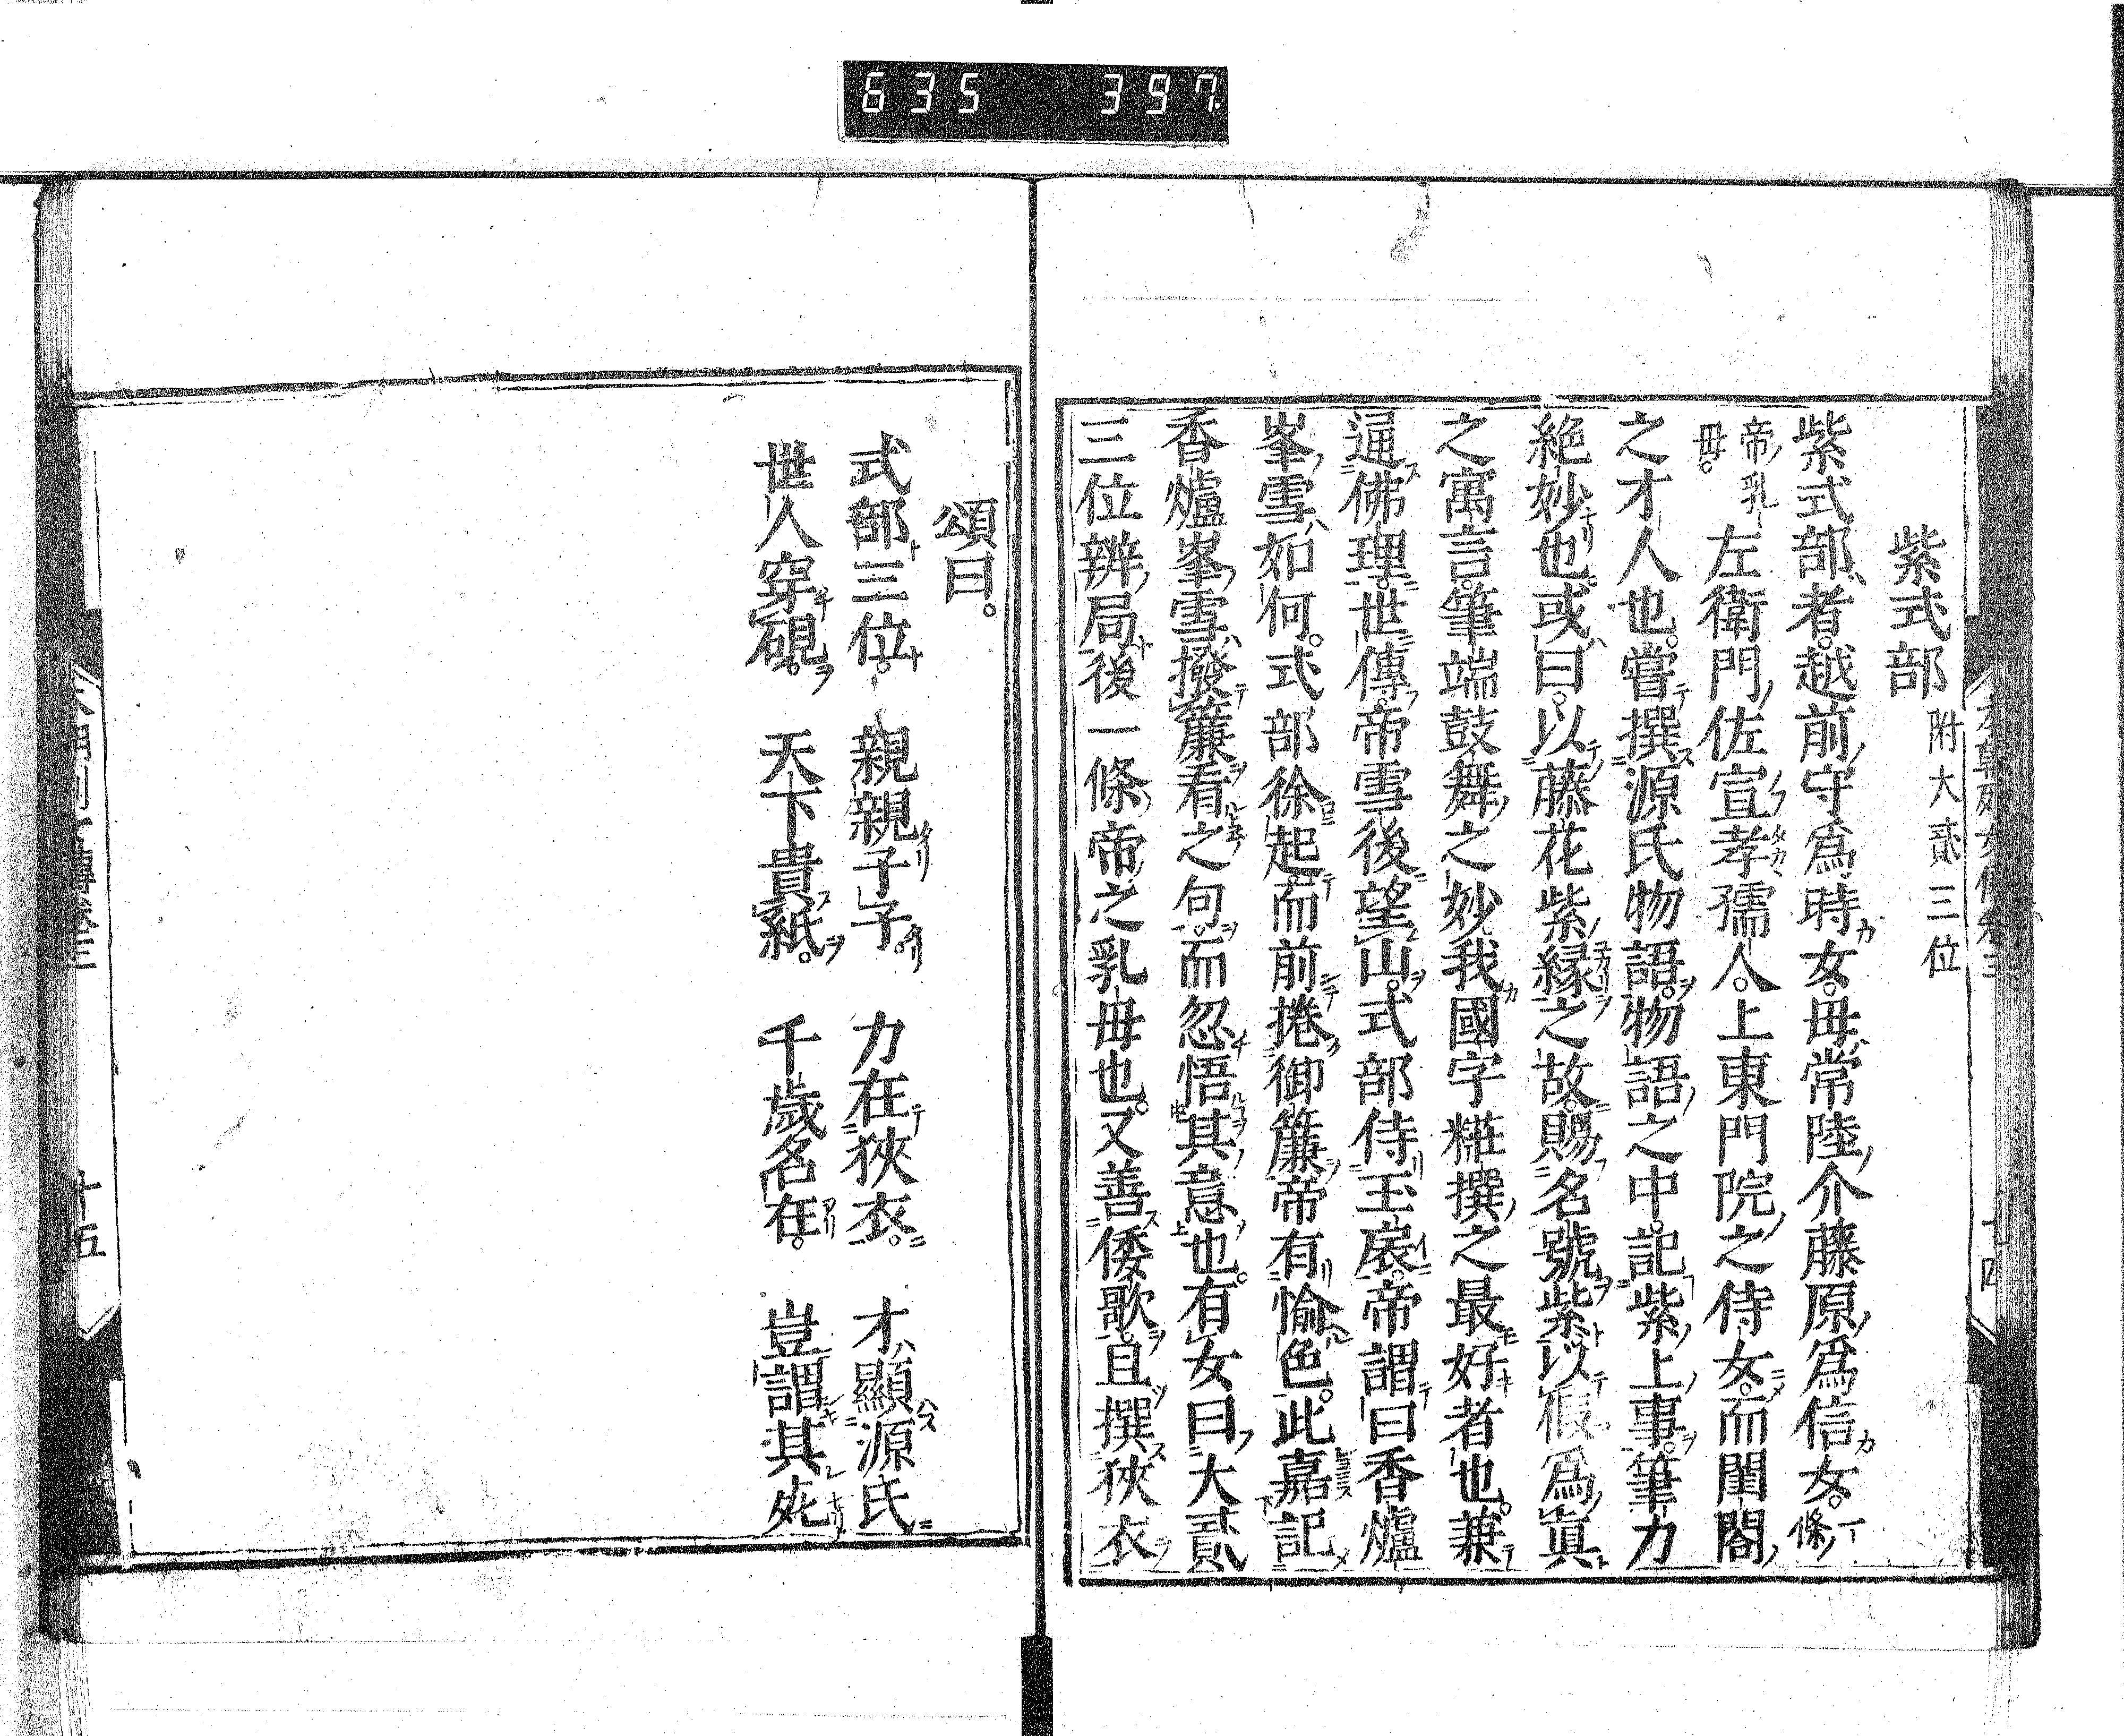 635 397
紫式部 附大貳三位
紫式部者。越前守爲時女。毋常陸介藤原爲信女。一條
帝乳毋。左衛門佐宣孝孺人。上東門院之侍女。而閨閤
之才人也。嘗撰源氏物語。物語之中。記紫上事。筆力
絶妙也。或曰。以藤花紫縁之故。賜名號紫。以假爲眞
之寓言。筆端鼓舞之妙。我國字糚撰之最好者也。兼
逼佛理。世傳。帝雪後望山。式部侍玉扆。帝謂曰香爐
峯雪如何。式部徐起而前捲御簾。帝有愉色。此嘉記
香爐峯雪撥簾看之句。而忽悟其意也。有女曰大貳
三位辨局。後一條帝之乳毋也。又善倭歌。且撰狹衣
頌曰。
式部三位。親親子子。力在狹衣。才顯源氏
世人穿硯。天下貴紙。千歲名在。豈謂其死
十五